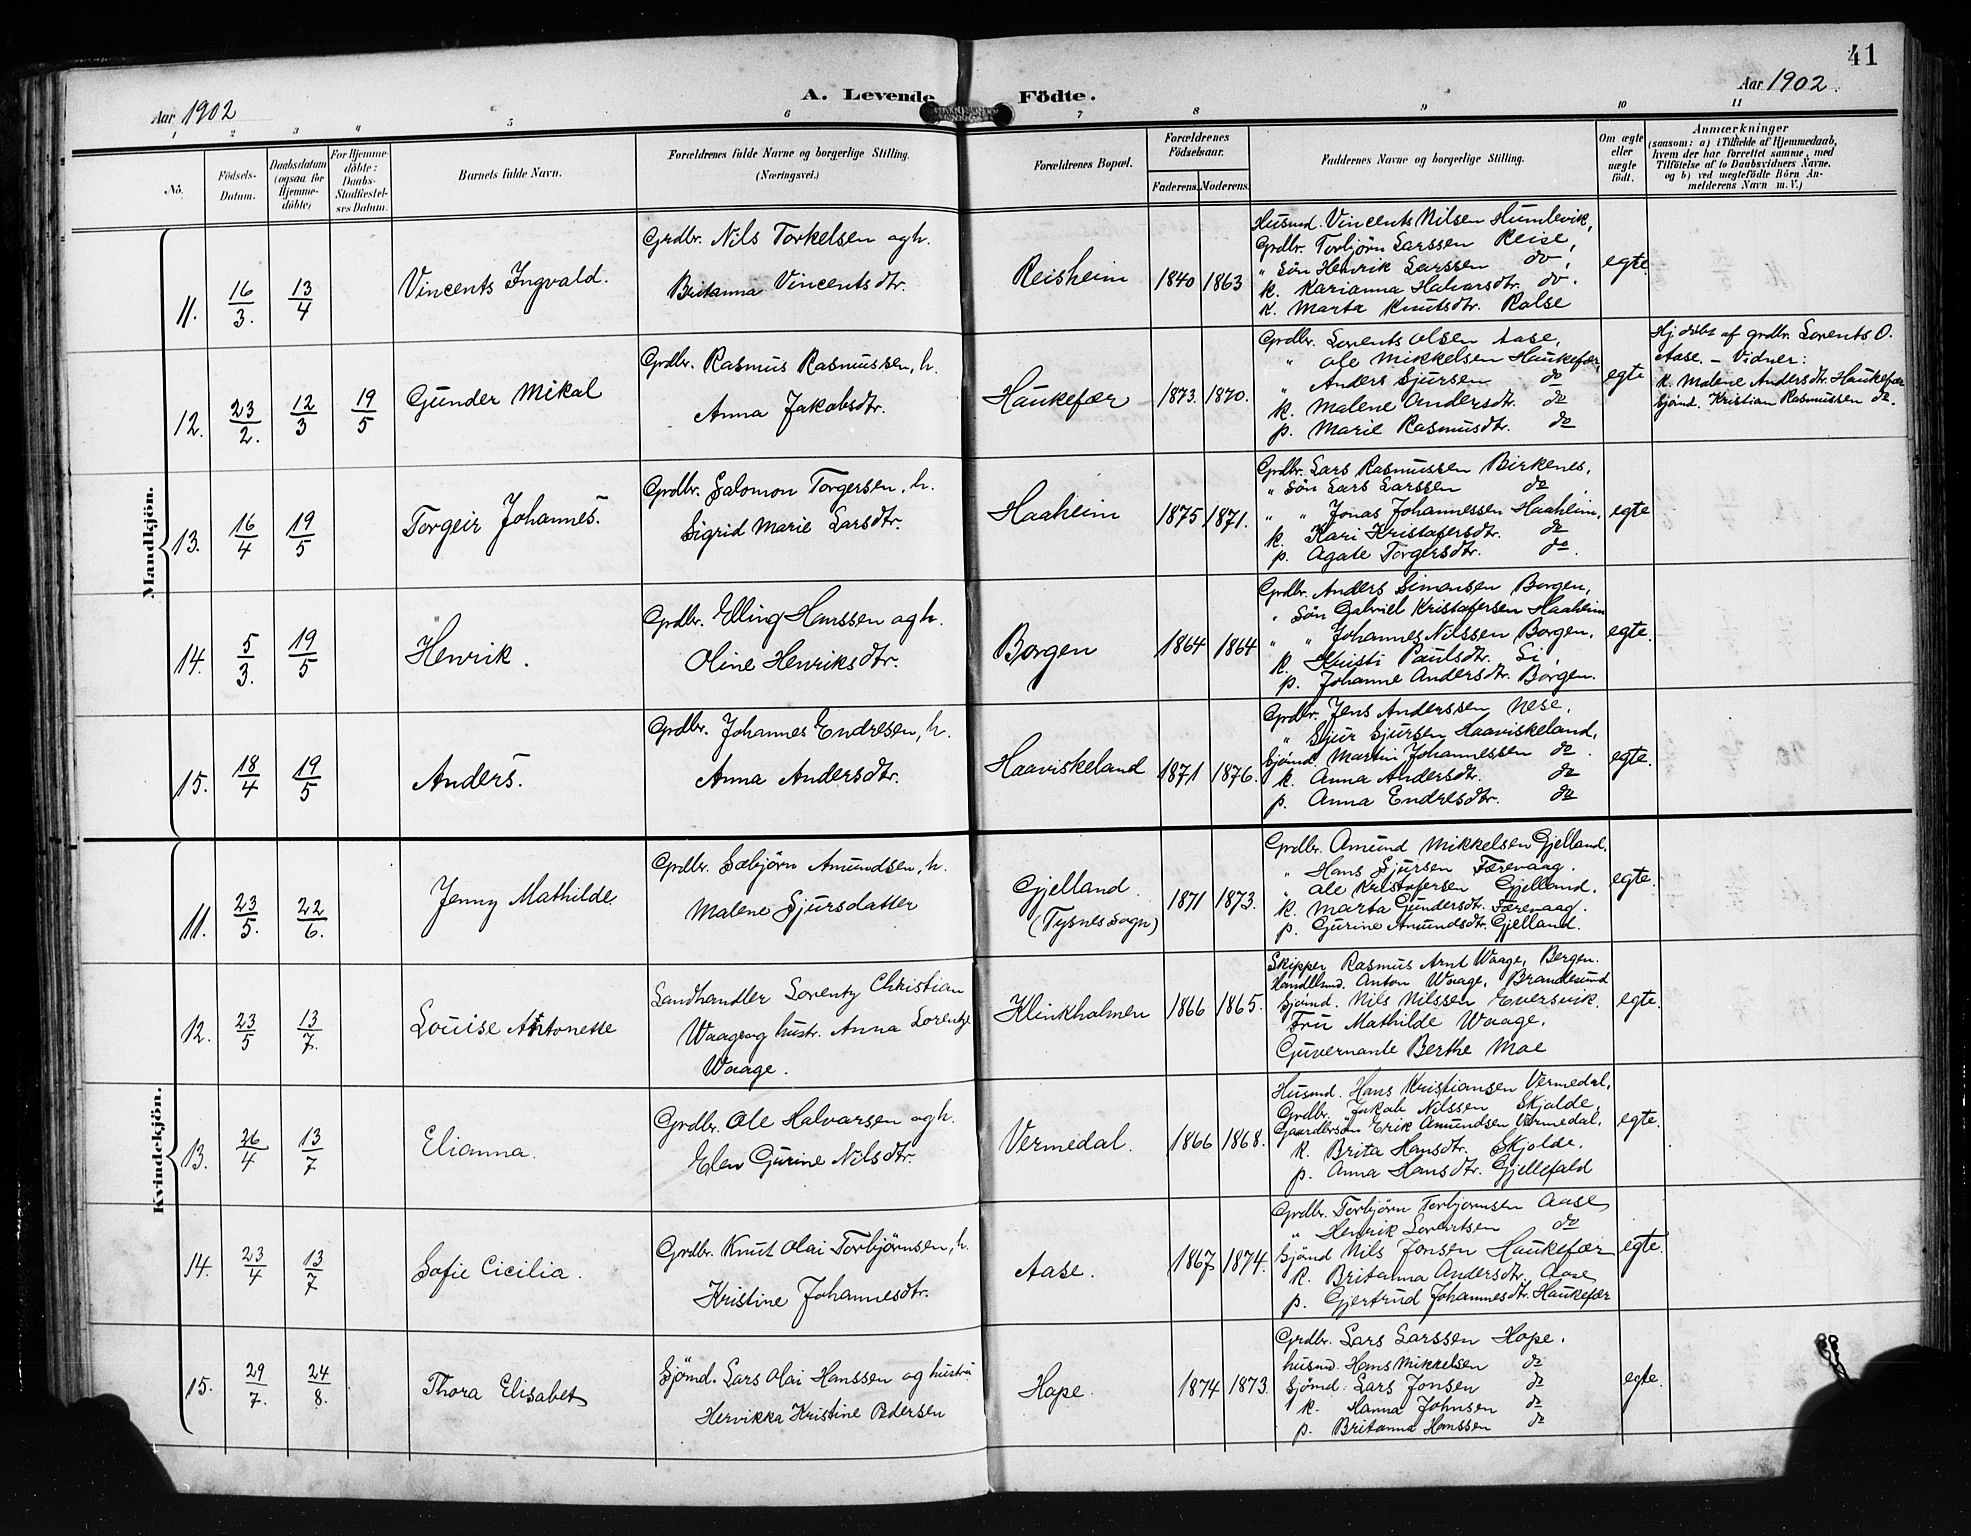 41
Aar 1902
A. Levende Födte.
Aar 1902
1 2 3 4 5 6 7 8 9 10 11
No.
Födsels-Datum.
Daabsdatum (ogsaa for Hjemme-döbte)
For Hjemme-döbte: Daabs-Stadfæstel-ses Datum.
Barnets fulde Navn.
Forældrenes fulde Navne og borgerlige Stilling. (Næringsvei.)
Forældrenes Bopæl.
Forældrenes Födselsaar.
Faderens. Moderens.
Faddernes Navne og borgerlige Stilling.
Om ægte eller uægte födt.
Anmærkninger
(saasom: a) i Tilfælde af Hjemmedaab,
hvem der har forrettet samme, med
Tilföielse af to Daabsvidners Navne,
og b) ved uægtefödte Börn An-
melderens Navn m.V.)
Mandkjön.
11. 16/3. 13/4 Vincents Ingvald.
Grdbr. Nils Torkelsen og h.
Britanna Vincentsdtr.
Reisheim 1840 1863
Husmd. Vincents Nilsen Humlevik,
Grdbr. Torbjörn Larssen Reise,
" Sön Henrik Larssen do,
k. Karianna Halvorsdtr. do.
k. Marta Knutsdtr. Rolse
egte
12. 23/2. 12/3 19/5 Gunder Mikal
Grdbr. Rasmus Rasmussen, h.
Anna Jakobsdtr.
Haukefær 1873. 1870.
Grdbr. Lorents Olsen Aase,
" Ole Mikkelsen Haukefær,
" Anders Sjursen do
k. Malene Andersdtr. do
p. Marie Rasmusdtr. do
egte
Hj.döbt af grdbr. Lorents O.
Aase. – Vidner:
k. Malene Andersdtr. Haukefær
Sjömd. Kristian Rasmussen do.
13. 16/4 19/5 Torgeir Johannes.
Grdbr. Salomon Torgersen, h.
Sigrid Marie Larsdtr.
Haaheim 1875 1871.
Grdbr. Lars Rasmussen Birkenes,
" Sön Lars Larssen do
" " Jonas Johannessen Haaheim,
k. Kari Kristofersdtr. do
p. Agate Torgersdtr. do.
egte
14. 5/3. 19/5 Henrik.
Grdbr. Elling Hanssen og h.
Oline Henriksdtr.
Borgen 1864 1864
Grdbr. Anders Simonsen Borgen,
" Sön Gabriel Kristofersen Haaheim
" " Johannes Nilssen Borgen,
k. Kristi Paulsdtr. Li,
p. Johanne Andersdtr. Borgen.
egte.
15. 18/4 19/5 Anders.
Grdbr. Johannes Endresen, h.
Anna Andersdtr.
Haaviskeland 1871 1876.
Grdbr. Jens Anderssen Nese,
" Sjur Sjursen Haaviskeland,
Sjömd. Martin Johannessen do.
k. Anna Andersdtr. do
p. Anna Endresdtr. do
egte.
Kvindekjön.
11. 23/5. 22/6. Jenny Mathilde
Grdbr. Sæbjörn Amundsen, h.
Malene Sjursdatter
Gjelland.
(Tysnes sogn) 1871 1873.
Grdbr. Amund Mikkelsen Gjelland.
" Hans Sjursen Færevaag.
" Ole Kristofersen Gjelland.
k. Marta Gundersdtr. Færevaag.
p. Gurine Amundsdtr. Gjelland.
egte.
12. 23/5 13/7. Louise Antonette
Landhandler Lorentz Christian
Waage og hustr. Anna Lorentze
Waage.
Klinkholmen 1866 1865.
Skipper Rasmus Arnt Waage, Bergen.
Handelsmd. Anton Waage, Brandesund
Sjömd. Nils Nilssen Eversvik.
Fru Mathilde Waage.
Guvernante Berthe Moe
egte.
13. 26/4 13/7 Elianna.
Grdbr. Ole Halvorsen og h.
Elen Gurine Nilsdtr.
Vermedal. 1866 1868.
Husmd. Hans Kristiansen Vermedal,
Grdbr. Jakob Nilssen Skjolde,
Gaardbrsön Erik Amundsen Vermedal,
k. Brita Hansdtr. Skjolde.
p. Anna Hansdtr. Gjellefald
egte.
14. 23/4 13/7 Sofie Cicilia.
Grdbr. Knut Olai Torbjörnsen, h.
Kristine Johannesdtr.
Aase. 1867 1874.
Grdbr. Torbjörn Torbjornsen Aase,
" Henrik Lorentsen do
Sjömd Nils Jonsen Haukefær
k. Britanna Andersdtr. Aase,
p. Gjertrud Johannesdtr. Haukefær
egte.
15. 29/7. 24/8. Thora Elisabet
Sjömd. Lars Olai Hanssen og hustru
Hervikka Kristine Pedersen
Hope. 1874 1873.
Grdbr. Lars Larssen Hope.
husmd. Hans Mikkelsen do
Sjömd. Lars Jonsen do
k. Hanna Johnsen do
p. Britanna Hanssen do
egte.